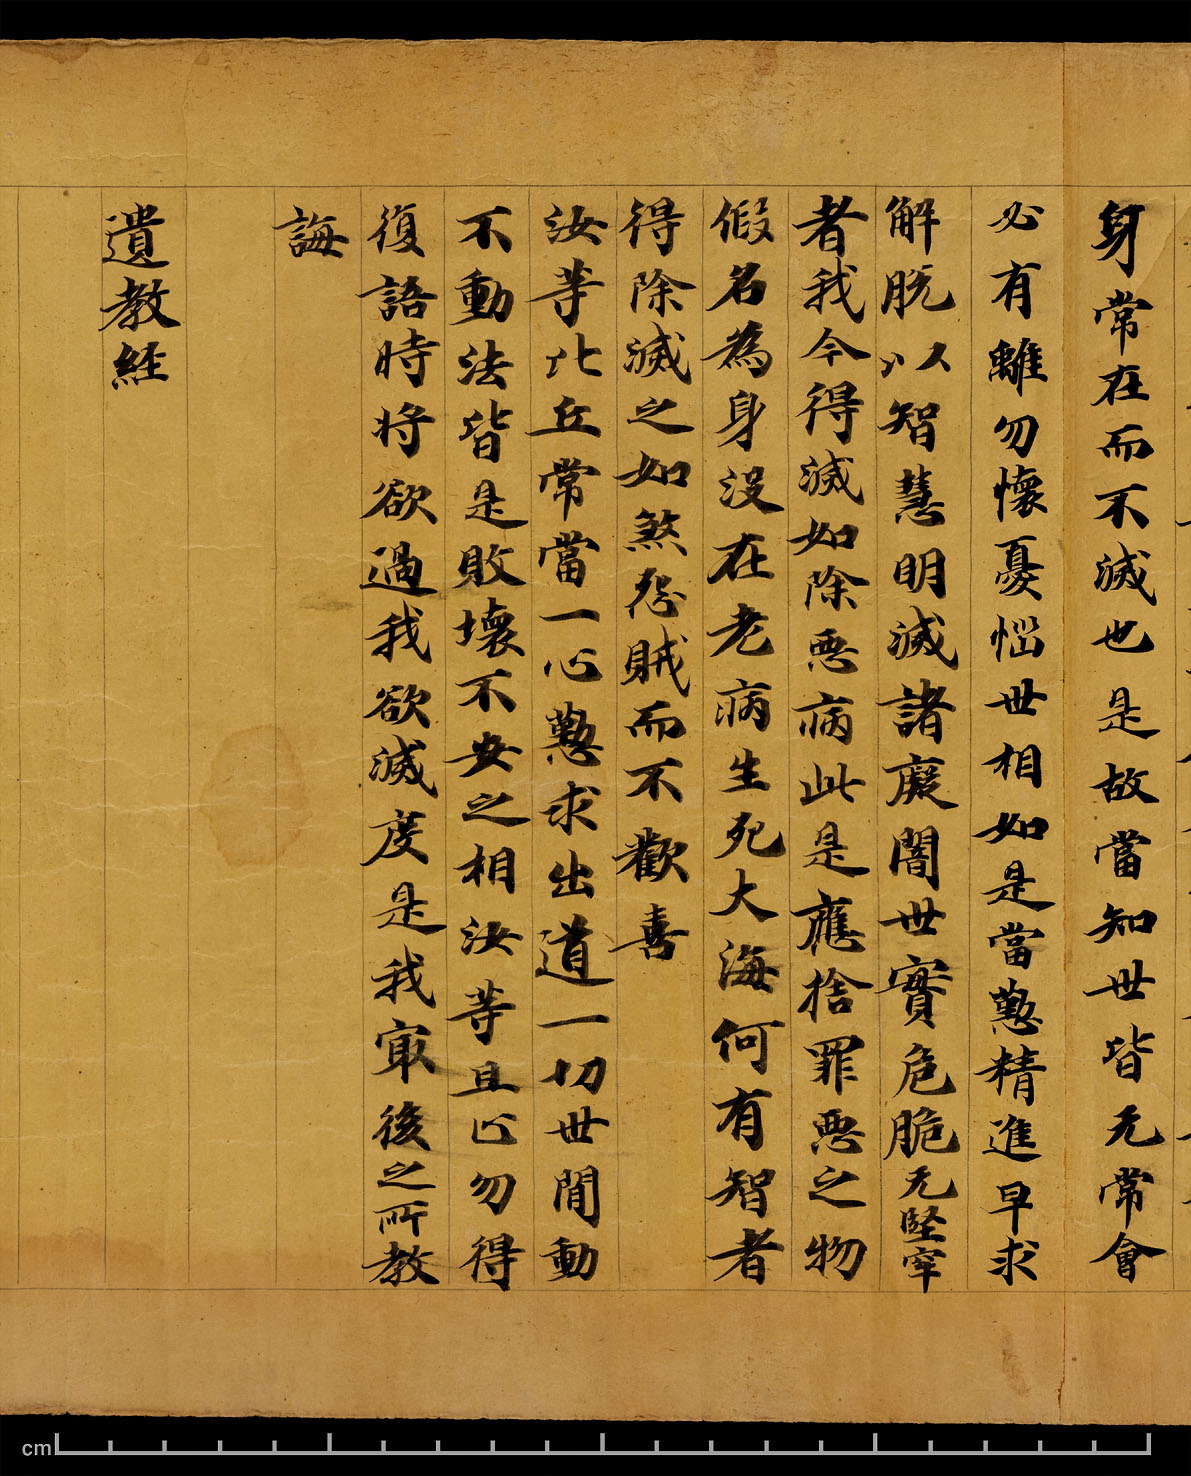 身常在而不滅也是故當知世皆无常會
必有離勿懷憂惱世相如是當懃精進早求
解脫以智慧明滅諸癡闇世實危脆无堅牢
者我今得滅如除惡病此是應捨罪惡之物
假名為身没在老病生死大海何有智者
得除滅之如煞怨賊而不歡喜
汝等比丘常當一心懃求出道一切世間動
不動法皆是敗壞不安之相汝等且止勿得
復語時將欲過我欲滅度是我寂後之所教
誨
遺教經